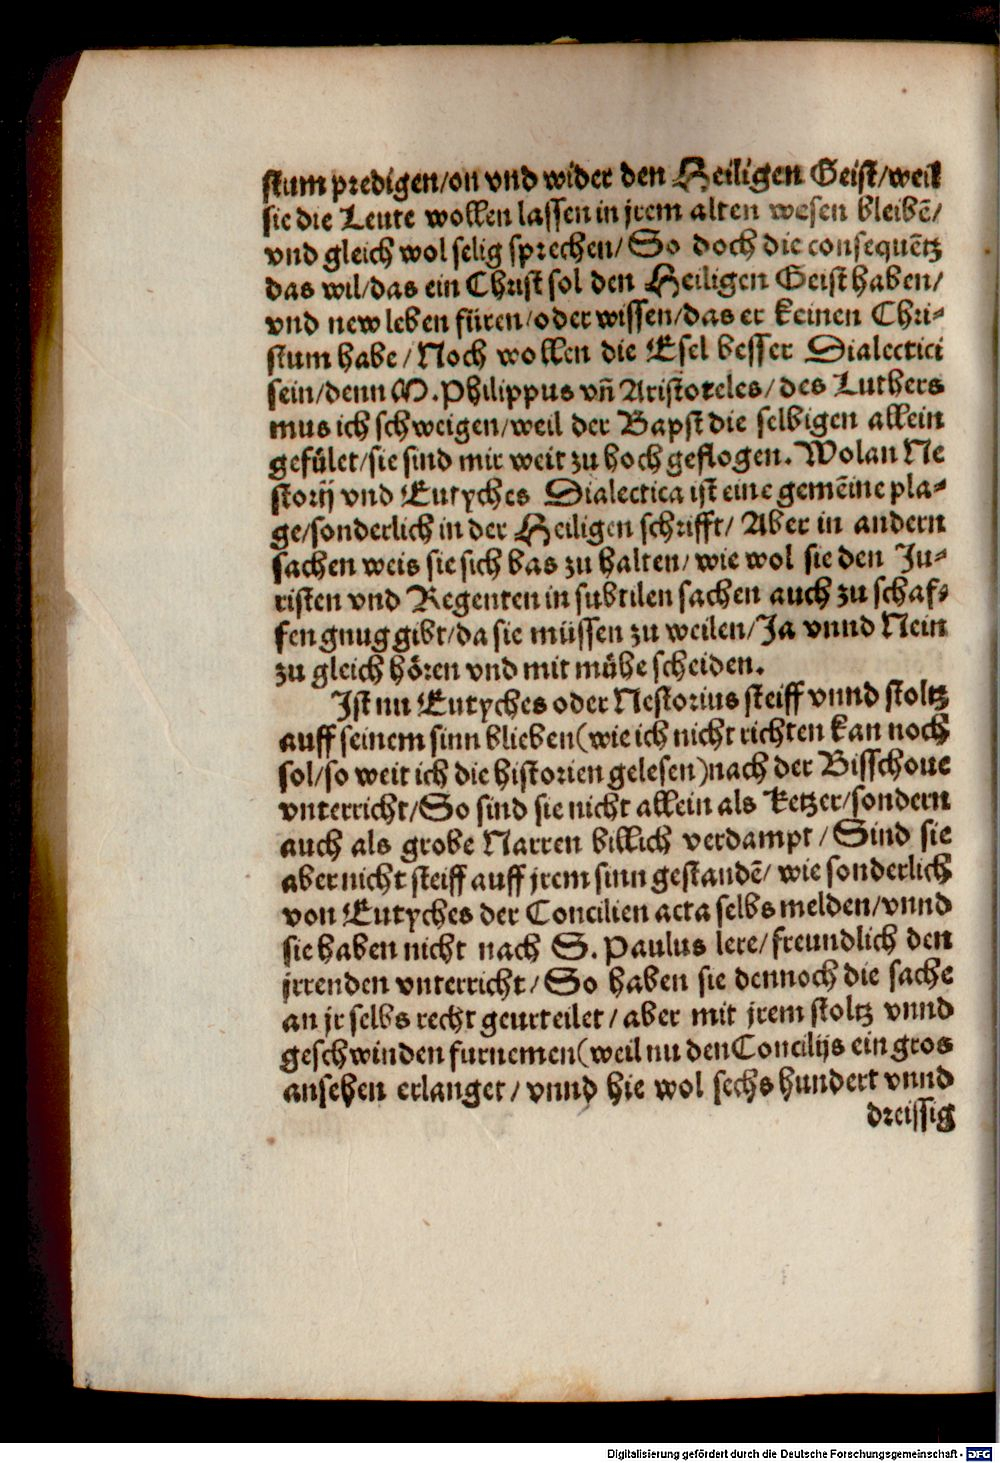 stum predigen/on vnd wider den Heiligen Geist/weil
sie die Leute wollen lassen in jrem alten wesen bleibẽ/
vnd gleich wol selig sprechen/ So doch die consequẽtz
das wil/das ein Christ sol den Heiligen Geist haben/
vnd new leben füren/oder wissen/das er keinen Chri⸗
stum habe/ Noch wollen die Esel besser Dialectici
sein/denn M. Philippus vñ Aristoteles/ des Luthers
mus ich schweigen/weil der Bapst die selbigen allein
gefület/sie sind mir weit zu hoch geflogen. Wolan Ne
storij vnd Eutyches Dialectica ist eine gemeine pla⸗
ge/sonderlich in der Heiligen schrifft/ Aber in andern
sachen weis sie sich bas zu halten/ wie wol sie den Ju⸗
risten vnd Regenten in subtilen sachen auch zu schaf⸗
fen gnug gibt/da sie müssen zu weilen/Ja vnnd Nein
zu gleich hören vnd mit mühe scheiden.
Ist nu Eutyches oder Nestorius steiff vnnd stoltz
auff seinem sinn blieben(wie ich nicht richten kan noch
sol/so weit ich die historien gelesen)nach der Bisschoue
vnterricht/So sind sie nicht allein als ketzer/sondern
auch als grobe Narren billich verdampt/ Sind sie
aber nicht steiff auff jrem sinn gestandẽ/ wie sonderlich
von Eutyches der Concilien acta selbs melden/vnnd
sie haben nicht nach S. Paulus lere/freundlich den
jrrenden vnterricht/ So haben sie dennoch die sache
an jr selbs recht geurteilet/ aber mit jrem stoltz vnnd
geschwinden furnemen(weil nu den Concilijs ein gros
ansehen erlanget/ vnnd hie wol sechs hundert vnnd
dreissig
Digitalisierung gefördert durch die Deutsche Forschungsgemeinschaft - DFG